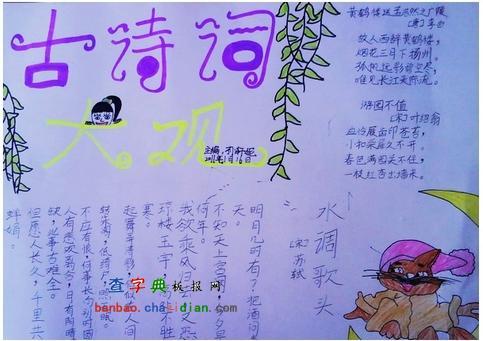 古诗词
大观
主编:
黄鹤楼送孟浩然之广陵
[唐]李白
故人西辞黄鹤楼,
烟花三月下扬州。
孤帆远影碧空尽,
唯见长江天际流。
游园不值
[宋]叶绍翁
应怜屐齿印苍苔,
小扣柴扉久不开。
春色满园关不住,
一枝红杏出墙来。
水调歌头
[宋]苏轼
明月几时有?把酒问
天。
不知天上宫阙,今夕是
何年。
我欲乘风归去,又恐
琼楼玉宇,高处不胜
寒。
起舞弄清影,何似在人间
转朱阁,低绮户,照无眠。
不应有恨,何事长向别时圆
人有悲欢离合,月有阴晴
缺,此事古难全。
但愿人长久,千里共
婵娟。
查字典板报网
banbao.chazidian.com